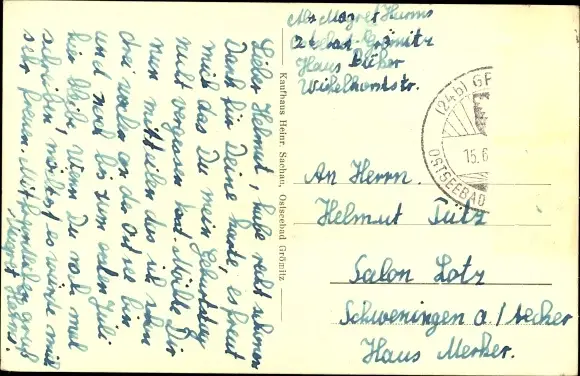 Abs. Magret Harms
Ostseebad Grömitz
Haus Büker
Wickelhorststr.
(24b) GR
15.6
OSTSEEBAD
An Herrn.
Helmut Pütz
Salon Lotz
Schweningen a/Necker
Haus Merker.
Kaufhaus Heinr. Sachau, Ostseebad Grömitz.
Lieber Helmut, habe recht schönen
Dank für Deine Karte, es freut
mich das Du mein Geburtstag
nicht vergessen hast. Möchte Dir
nun mitteilen das ich schon
drei Wochen an der Ostsee bin
und noch bis zum ersten Juli
hier bleibe. Wenn Du noch mal
schreiben möchtest es würde mich
sehr freuen. Mit freundlichem gruß
Magret Harms!